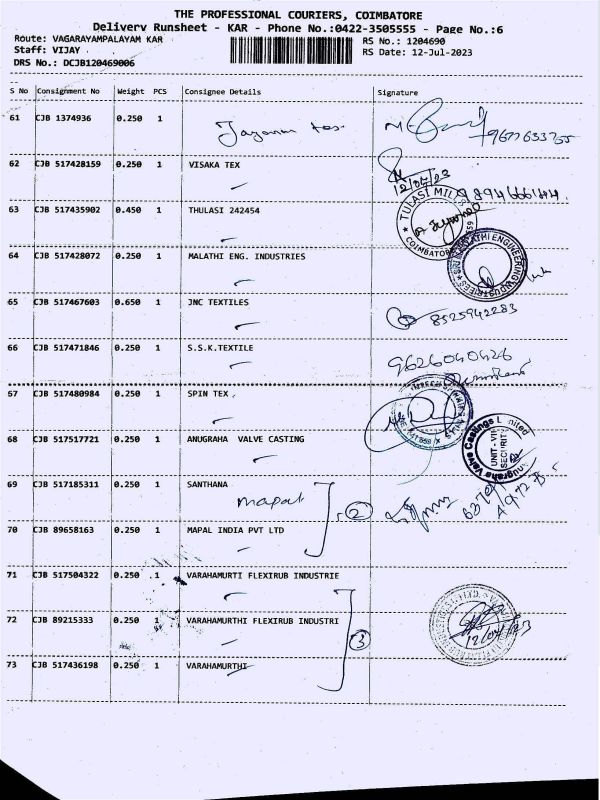 THE PROFESSIONAL COURIERS, COIMBATORE
Delivery Runsheet - KAR - Phone No.:0422-3505555 - Page No.:6
Route: VAGARAYAMPALAYAM KAR
RS No.: 1204690
Staff: VIJAY
RS Date: 12-Jul-2023
DRS No.: DCJB120469006
S No Consignment No Weight PCS Consignee Details Signature
61 CJB 1374936 0.250 1
62 CJB 517428159 0.250 1 VISAKA TEX
12/07/23
63 CJB 517435902 0.450 1 THULASI 242454
TULASI MILLS
COIMBATORE
64 CJB 517428072 0.250 1 MALATHI ENG. INDUSTRIES
MALATHI ENGINEERING INDUSTRIES
65 CJB 517467603 0.650 1 JNC TEXTILES
8525942283
66 CJB 517471846 0.250 1 S.S.K.TEXTILE
9626040426
67 CJB 517480984 0.250 1 SPIN TEX
68 CJB 517517721 0.250 1 ANUGRAHA VALVE CASTING
Anugraha Valve Castings Limited
UNIT-VII
SECURITY
69 CJB 517185311 0.250 1 SANTHANA
mapal
2
70 CJB 89658163 0.250 1 MAPAL INDIA PVT LTD
71 CJB 517504322 0.250 1 VARAHAMURTI FLEXIRUB INDUSTRIE
72 CJB 89215333 0.250 1 VARAHAMURTHI FLEXIRUB INDUSTRI
3
73 CJB 517436198 0.250 1 VARAHAMURTHI